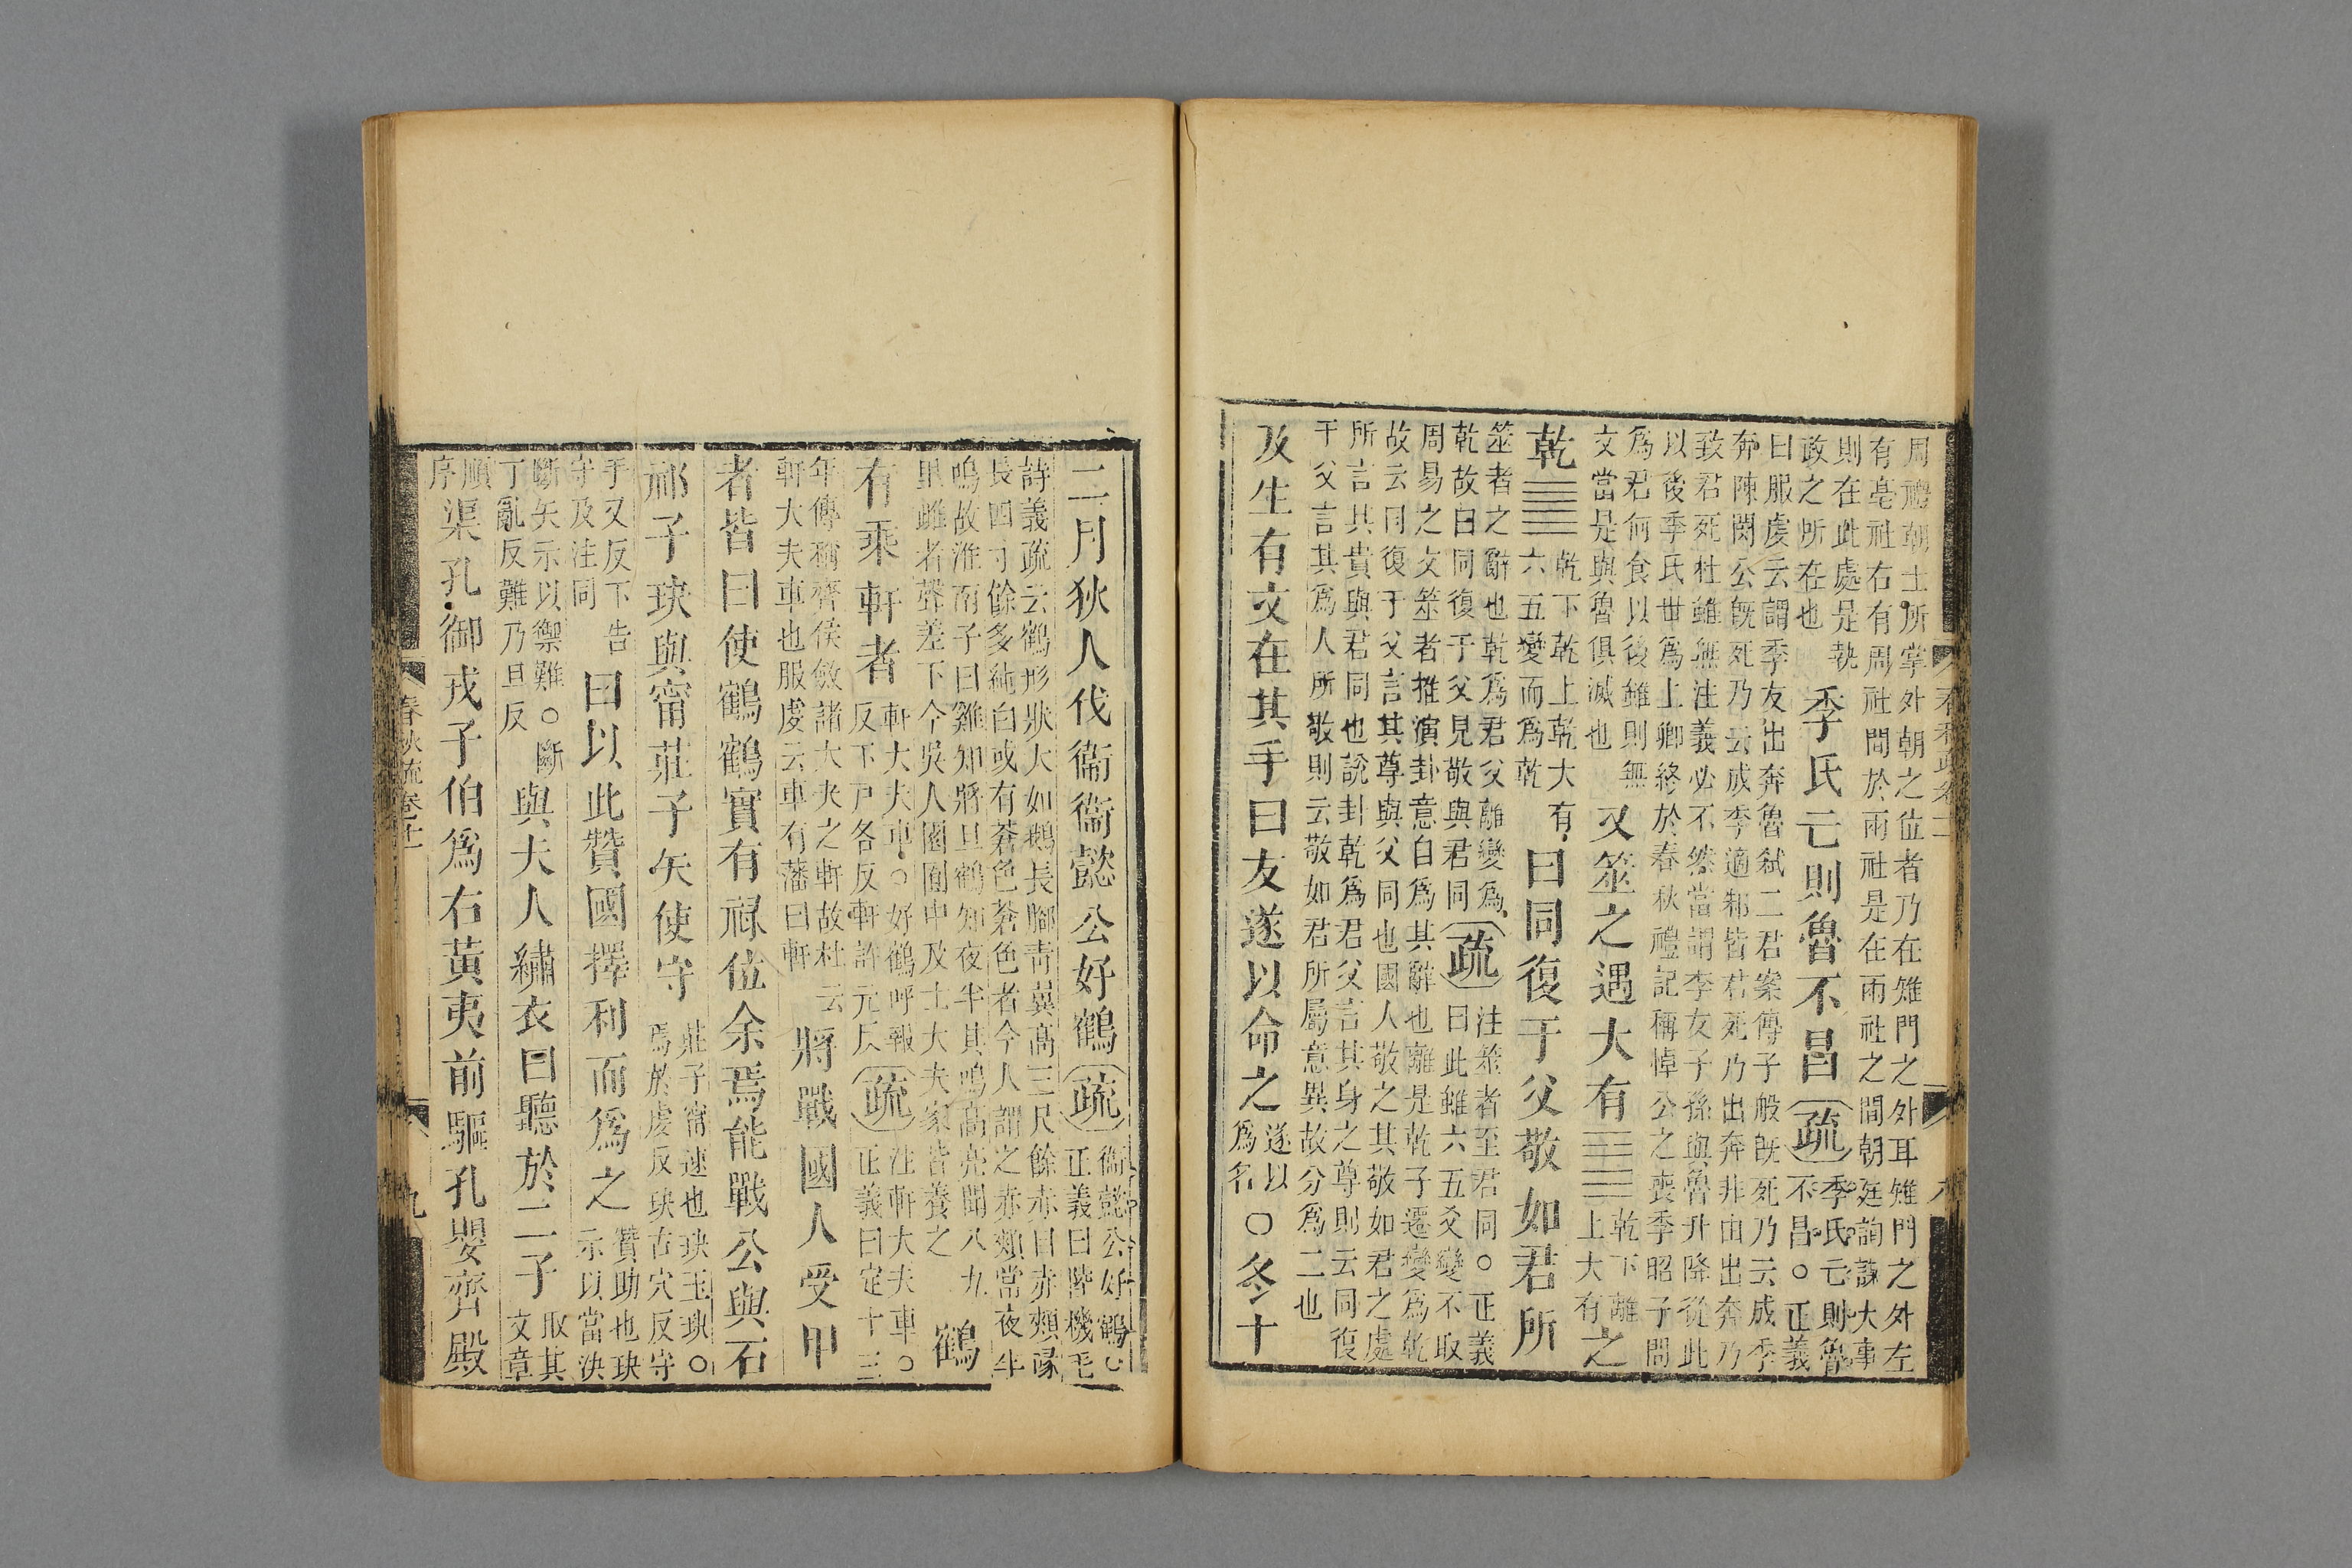 周禮朝士所掌外朝之位者乃在雉門之外耳雉門之外左
有亳社右有周社間於兩社是在兩社之間朝廷詢謀大事
則在此處是執
政之所在也
季氏亡則魯不昌
疏
季氏亡則魯
不昌○正義
曰服虔云謂季友出奔魯弒二君案傳子般旣死乃云成季
奔陳閔公旣死乃云成季適邾皆君死乃出奔非由出奔乃
致君死杜雖無注義必不然當謂季友子孫與魯升降從此
以後季氏世爲上卿終於春秋禮記稱悼公之喪季昭子問
爲君何食以後雖則無
文當是與魯俱滅也
又筮之遇大有
乾下離
上大有
之
乾
乾下乾上乾大有
六五變而爲乾
曰同復于父敬如君所
筮者之辭也乾爲君父離變爲
乾故曰同復于父見敬與君同
疏
注筮者至君同○正義
曰此雖六五爻變不取
周易之文筮者推演卦意自爲其辭也離是乾子還變爲乾
故云同復于父言其尊與父同也國人敬之其敬如君之處
所言其貴與君同也說卦乾爲君父言其身之尊則云同復
于父言其爲人所敬則云敬如君所屬意異故分爲二也
及生有文在其手曰友遂以命之
遂以
爲名
○冬十
二月狄人伐衞衞懿公好鶴
疏
衞懿公好鶴○
正義曰陸機毛
詩義疏云鶴形狀大如鵝長腳青翼高三尺餘赤目赤頰喙
長四寸餘多純白或有蒼色蒼色者今人謂之赤頰當夜半
鳴故淮南子曰雞知將旦鶴知夜半其鳴高亮聞八九
里雌者聲差下今吳人園囿中及士大夫家皆養之
鶴
有乘軒者
軒大夫車○好鶴呼報
反下戸各反軒許元反
疏
注軒大夫車○
正義曰定十三
年傳稱齊侯斂諸大夫之軒故杜云
軒大夫車也服虔云車有藩曰軒
將戰國人受甲
者皆曰使鶴鶴實有祿位余焉能戰公與石
祁子玦與甯莊子矢使守
莊子甯速也玦玉玦○
焉於虔反玦古穴反守
手又反下告
守及注同
曰以此贊國擇利而爲之
贊助也玦
示以當決
斷矢示以禦難○斷
丁亂反難乃旦反
與夫人繡衣曰聽於二子
取其
文章
順
序
渠孔御戎子伯爲右黃夷前驅孔嬰齊殿
春秋疏卷十一
九